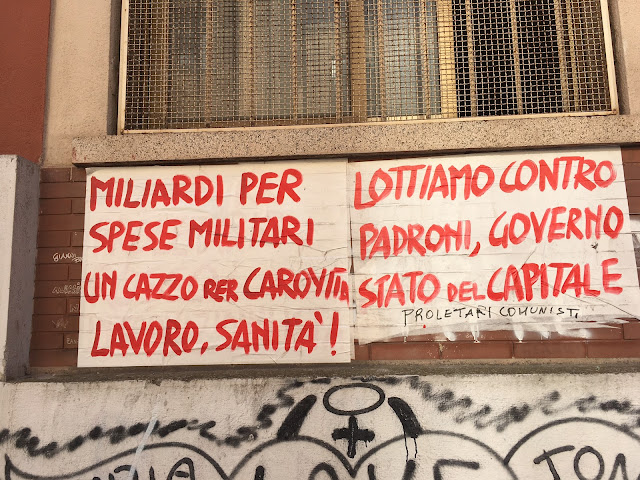 MILIARDI PER
SPESE MILITARI
UN CAZZO PER CAROVITA
LAVORO, SANITÀ!
LOTTIAMO CONTRO
PADRONI, GOVERNO
STATO DEL CAPITALE
PROLETARI COMUNISTI
LOVE